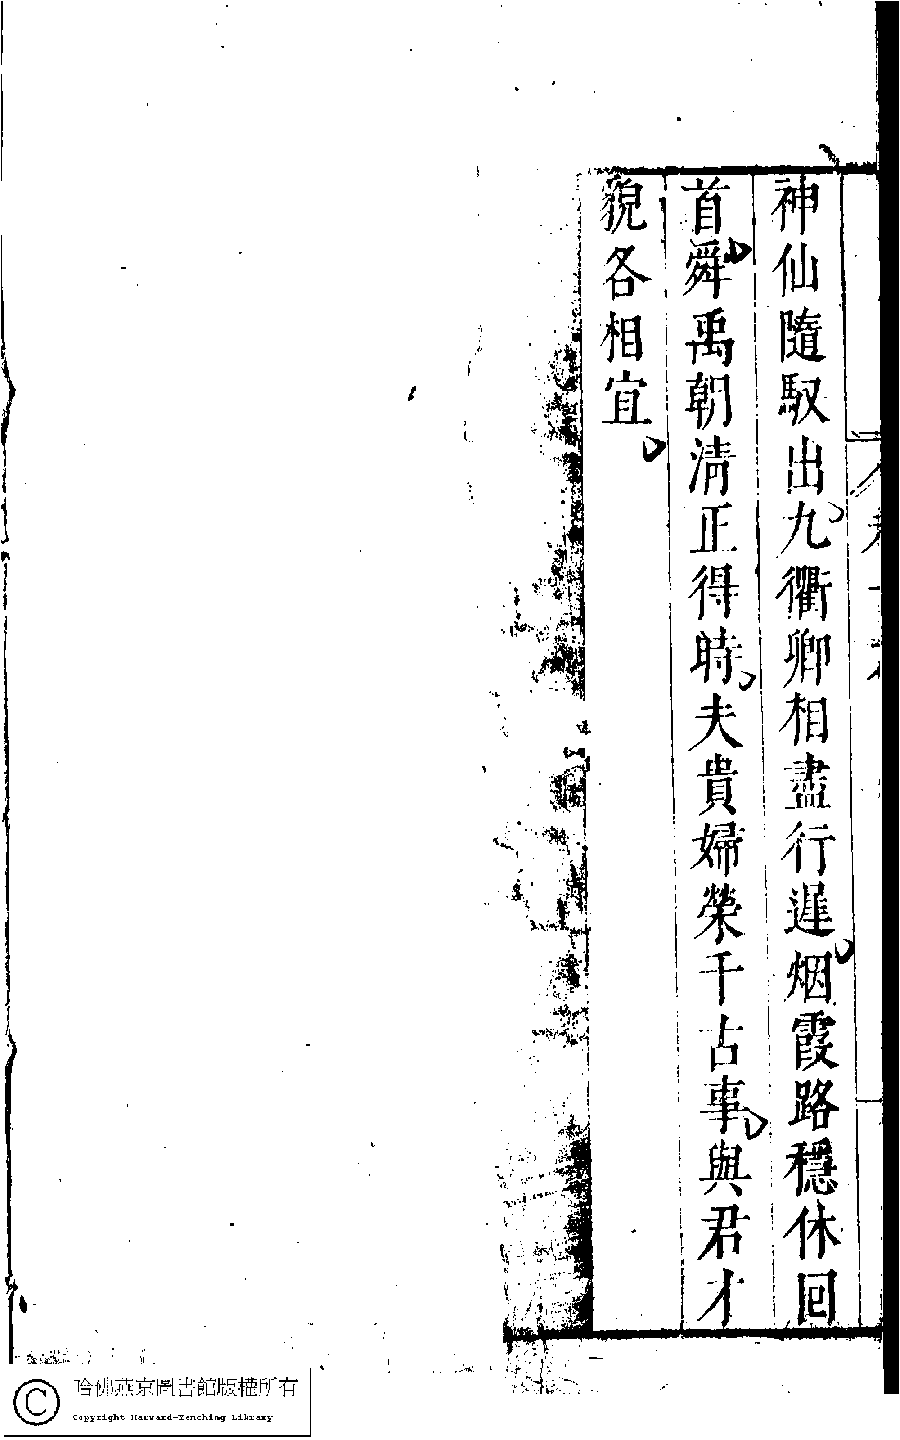 神仙隨馭出九衢卿相盡行遲烟霞路穩休回
首舜禹朝清正得時夫貴婦榮千古事與君才
貌各相宜
哈佛燕京圖書館版權所有
Copyright Harvard-Yenching Library